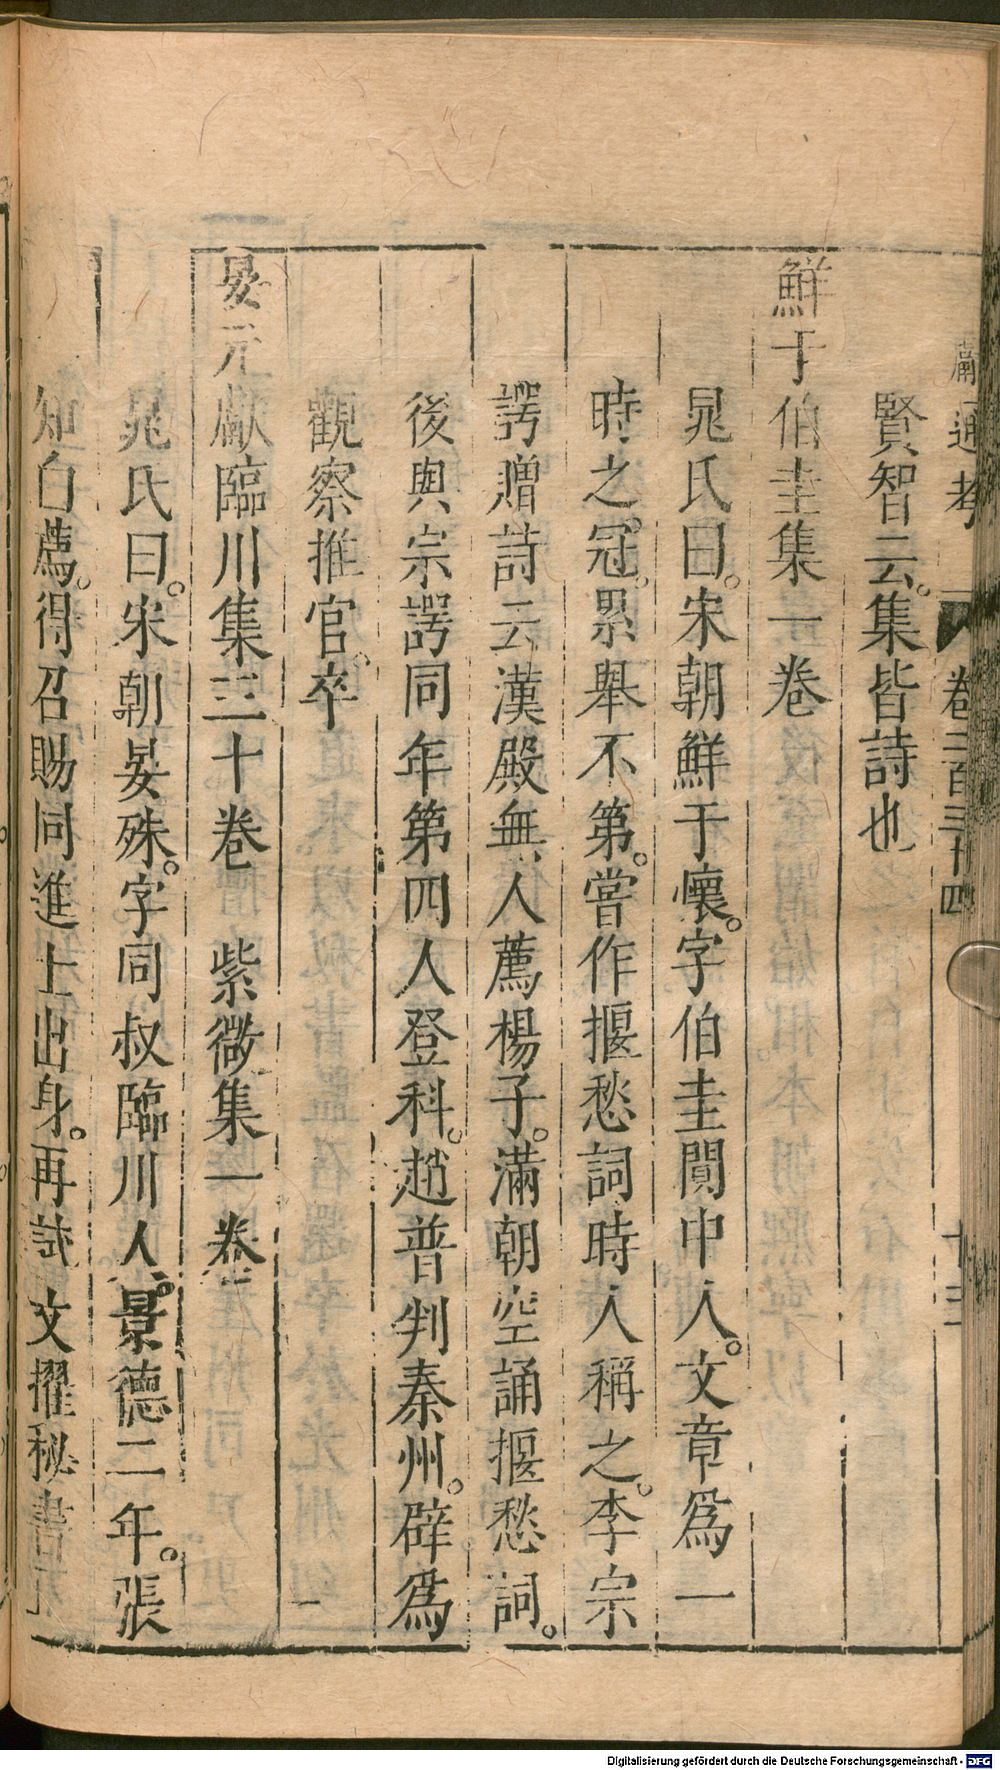 通考 卷二百三十四 十三
賢智云。集皆詩也
鮮于伯圭集一卷
晁氏曰。宋朝鮮于懷。字伯圭閬中人。文章爲一
時之冠。累舉不第。嘗作揠愁詞時人稱之。李宗
諤贈詩云漢殿無人薦楊子。滿朝空誦揠愁詞。
後與宗諤同年第四人登科。趙普判秦州。辟爲
觀察推官。卒
晏元獻臨川集三十卷 紫微集一卷
晁氏曰。宋朝晏殊。字同叔臨川人。景德二年。張
知白薦。得召賜同進士出身。再試文擢秘書
Digitalisierung gefördert durch die Deutsche Forschungsgemeinschaft - DFG